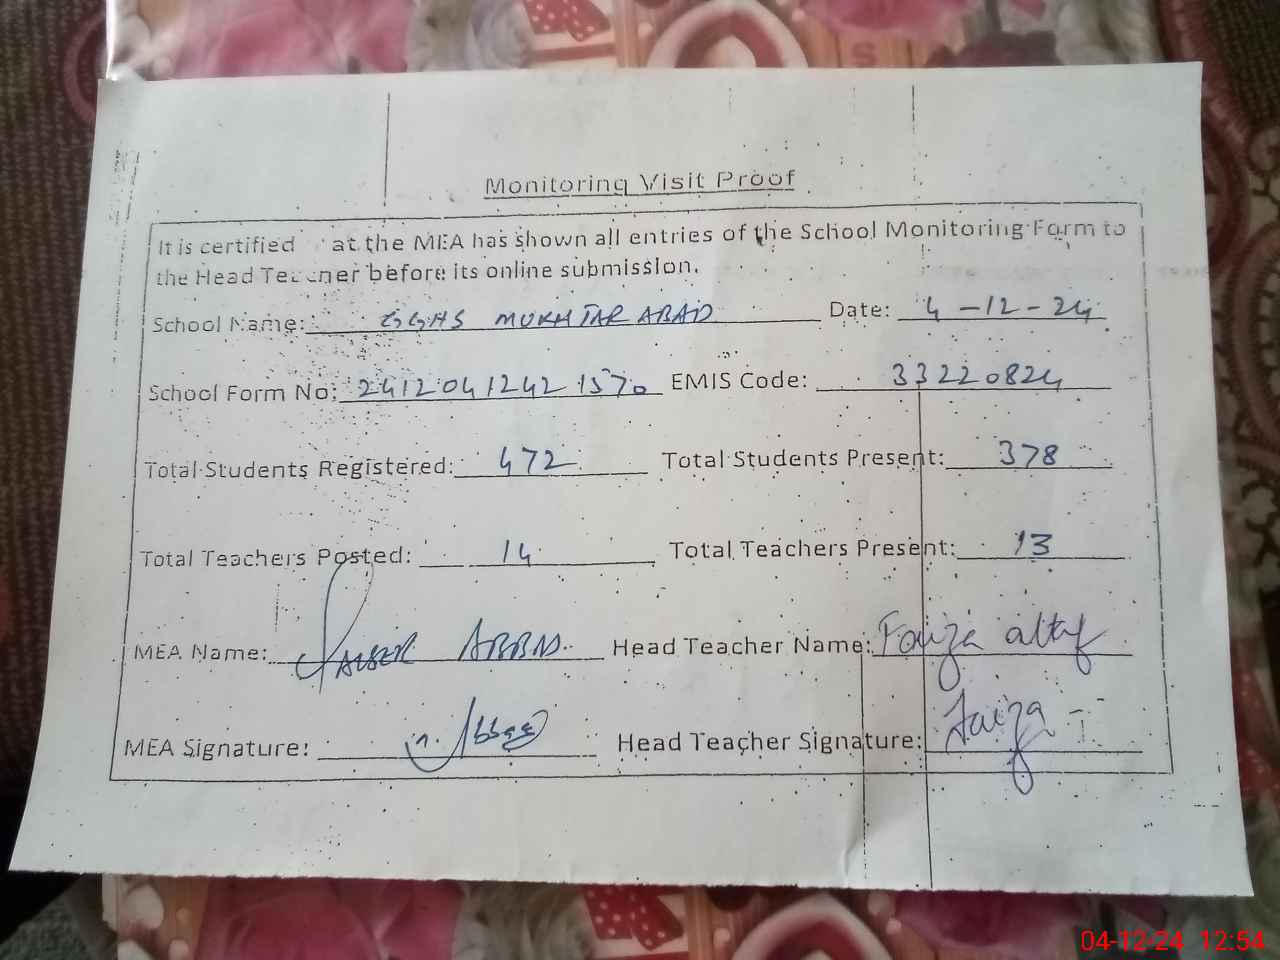 Monitoring Visit Proof
It is certified at the MEA has shown all entries of the School Monitoring Form to
the Head Teacher before its online submission.
School Name: GGHS MUKHTAR ABAD Date: 4-12-24
School Form No: 24120412421570 EMIS Code: 33220824
Total Students Registered: 472 Total Students Present: 378
Total Teachers Posted: 14 Total Teachers Present: 13
MEA Name: ABBAS Head Teacher Name: Faiza altaf
MEA Signature: Head Teacher Signature: Faiza
04-12-24 12:54